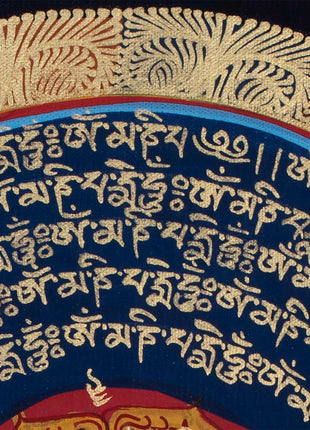 ཧཱུྃ༔ ཨོཾ་མ་ཎི་པ ༄༅།།
ཨོཾ་མ་ཎི་པདྨེ་ཧཱུྃ༔ ཨོཾ་མ་ཎི་
པདྨེ་ཧཱུྃ༔ ཨོཾ་མ་ཎི་པདྨེ་ཧཱུྃ༔ ཨོཾ་མ་
ཧཱུྃ༔ ཨོཾ་མ་ཎི་པདྨེ་ཧཱུྃ༔ ཨོཾ་མ་ཎི་
དྨེ་ཧཱུྃ༔ ཨོཾ་མ་ཎི་པདྨེ་ཧཱུྃ༔ ཨོཾ་མ་